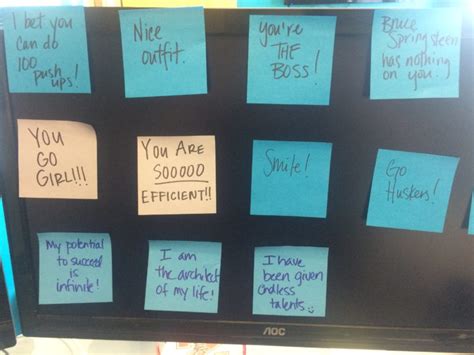 I bet you
can do
100
push
ups!
Nice
outfit.
you're
THE
BOSS!
Bruce
Springsteen
has nothing
on you!
YOU
GO
GIRL!!!
YOU ARE
SOOOOO
EFFICIENT!!
Smile!
Go
Huskers!
My potential
to success
is
infinite!
I am
the architect
of my life!
I have
been given
endless
talents
AOC